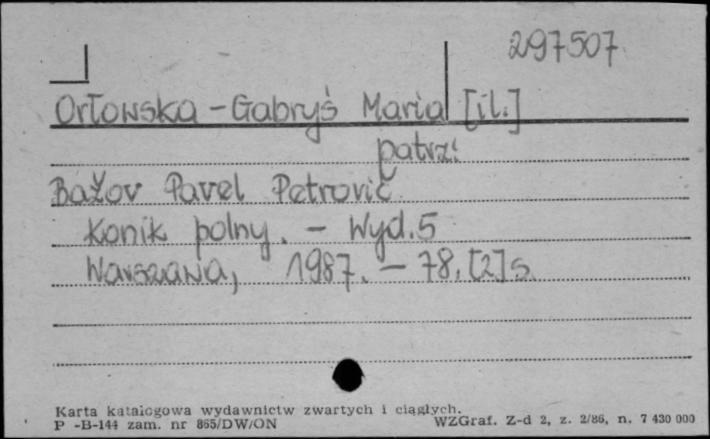 297507
Orłowska-Gabryś Maria [il.]
patrz:
Bažov Pavel Petrovič
Konik polny. - Wyd. 5
Warszawa, 1987. - 78, [2] s.
Karta katalogowa wydawnictw zwartych i ciągłych.
P -B-144 zam. nr 865/DW/ON WZGraf. Z-d 2, z. 2/86, n. 7 430 000